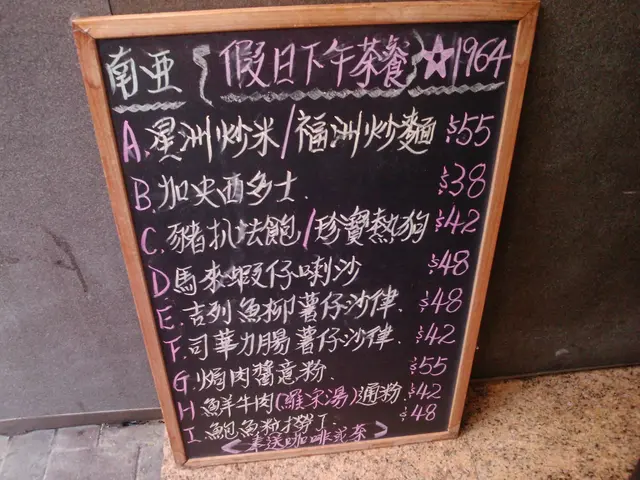 南亚 {假日下午茶餐} ★1964
A.星洲炒米/福洲炒麵 $55
B.加央西多士. $38
C.豬扒法飽/珍寶熱狗 $42
D.馬來蝦仔喇沙 $48
E.吉列魚柳薯仔沙律. $48
F.司華力腸薯仔沙律. $42
G.焗肉醬意粉. $55
H.鮮牛肉(羅宋湯)通粉. $42
I.鮑魚粒撈丁 $48
<奉送咖啡或茶>